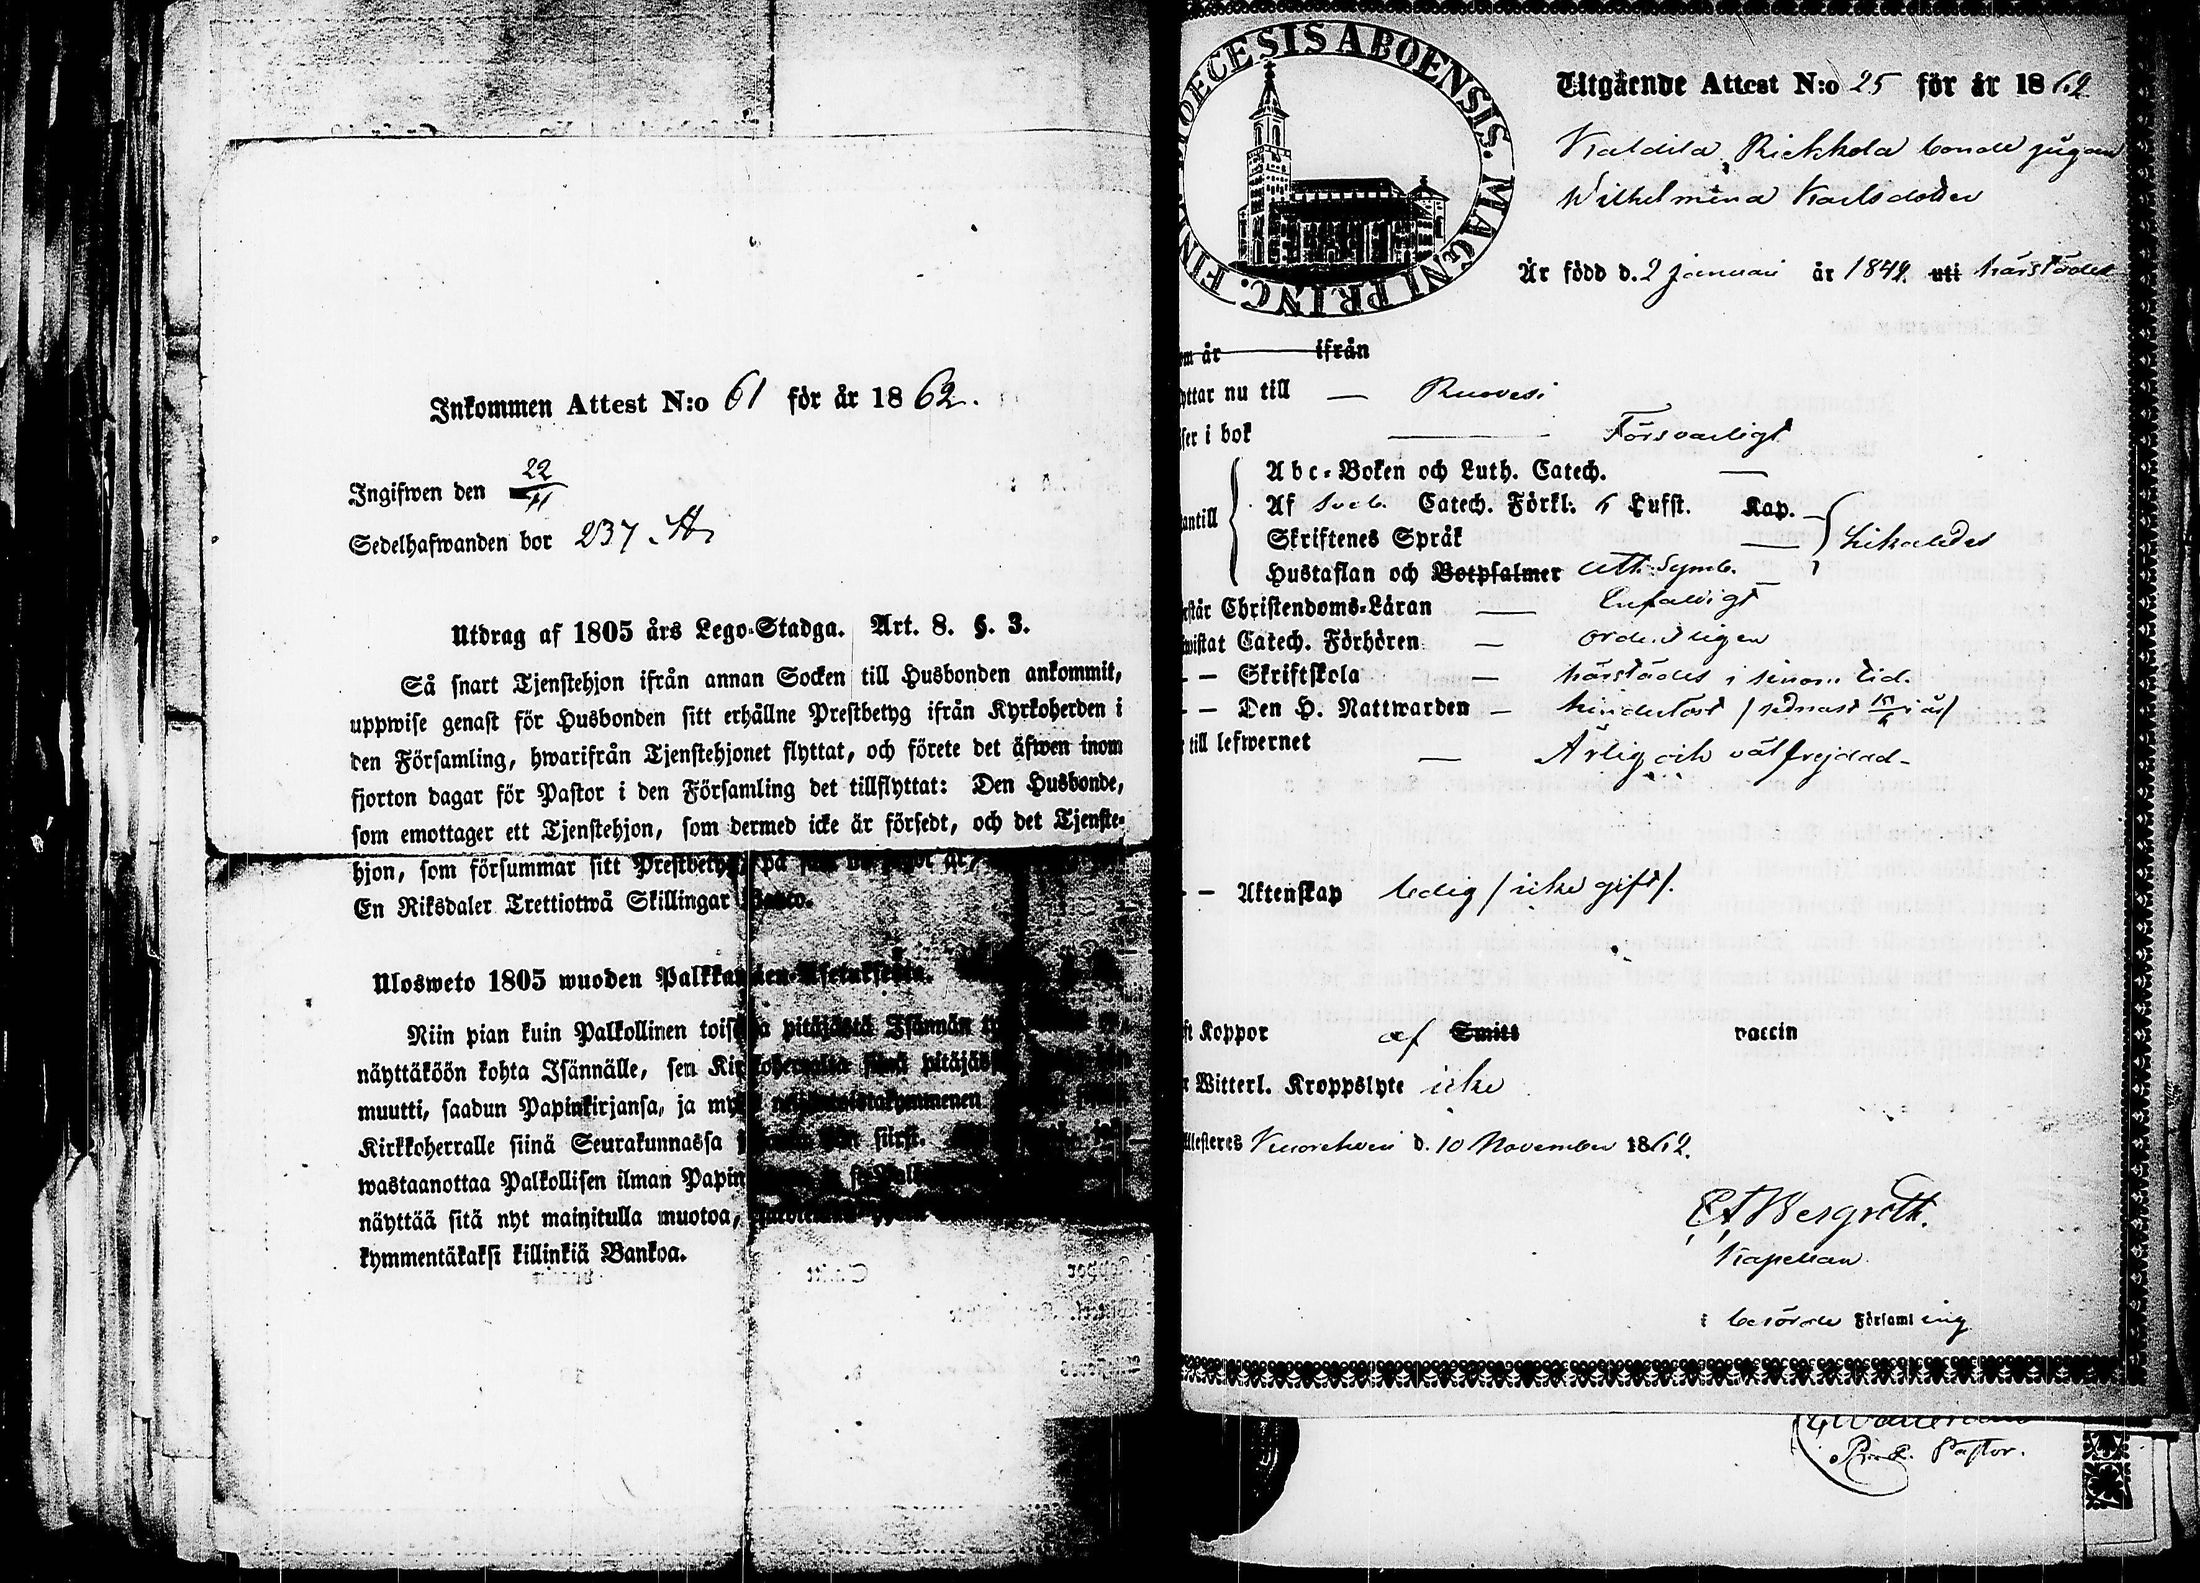 Inkommen Attest N:o 61 för år 1862.
Ingifwen den 22/11
Sedelhafwanden bor 237.
Utdrag af 1805 års Lego-Stadga. Art. 8. §. 3.
Så snart Tjenstehjon ifrån annan Socken till Husbonden ankommit,
uppwise genast för Husbonden sitt erhållne Prestbetyg ifrån Kyrkoherden i
den Församling, hwarifrån Tjenstehjonet flyttat, och förete det äfwen inom
fjorton dagar för Pastor i den Församling det tillflyttat: Den Husbonde,
som emottager ett Tjenstehjon, som dermed icke är försedt, och det Tjenste-
hjon, som försummar sitt Prestbetyg på
En Riksdaler Trettiotwå Skillingar Banco.
Ulosweto 1805 wuoden Palkkawäen-Asetuksesta.
Niin pian kuin Palkollinen toisesta pitäjästä Isännän
näyttäköön kohta Isännälle, sen Kirkkoherralta siinä pitäjäs
muutti, saadun Papinkirjansa, ja myös neljäntoistakymmenen
Kirkkoherralle siinä Seurakunnassa siirsi.
wastaanottaa Palkollisen ilman Papin
näyttää sitä nyt mainitulla muotoa,
kymmentäkaksi killinkiä Bankoa.
DIOECESIS ABOENSIS. MAGNI PRINC. FIN
Utgående Attest N:o 25 för år 1862
Kaldila, Riekkola bonde pigan
Wilhelmina Karlsdotter
Är född d. 2 Januari år 1842 uti härstädes
om år ifrån
yttar nu till — Ruovesi
ser i bok — Försvarligt
Abc-Boken och Luth. Catech. —
antill Af Sveb. Catech. Förkl: 6 Hufst. Kap. — likaledes
Skriftenes Språk —
Hustaflan och Botpsalmer Ath. Symb. —
rstår Christendoms-Läran — Enfaldigt
wistat Catech. Förhören — ordentligen
- — Skriftskola — härstädes i sinom tid.
- — Den H. Nattwarden — hindelöst / sednast 15/6 i år/
till lefwernet — Ärlig och välfrejdad-
- — Äktenskap ledig / icke gift /.
ft Koppor af Smitt vaccin
r Witterl. Kroppslyte icke
llesteres Kuorehvesi d. 10 November 1862.
EA Bergroth.
Kapellan.
i berörde Församling
Pastor.